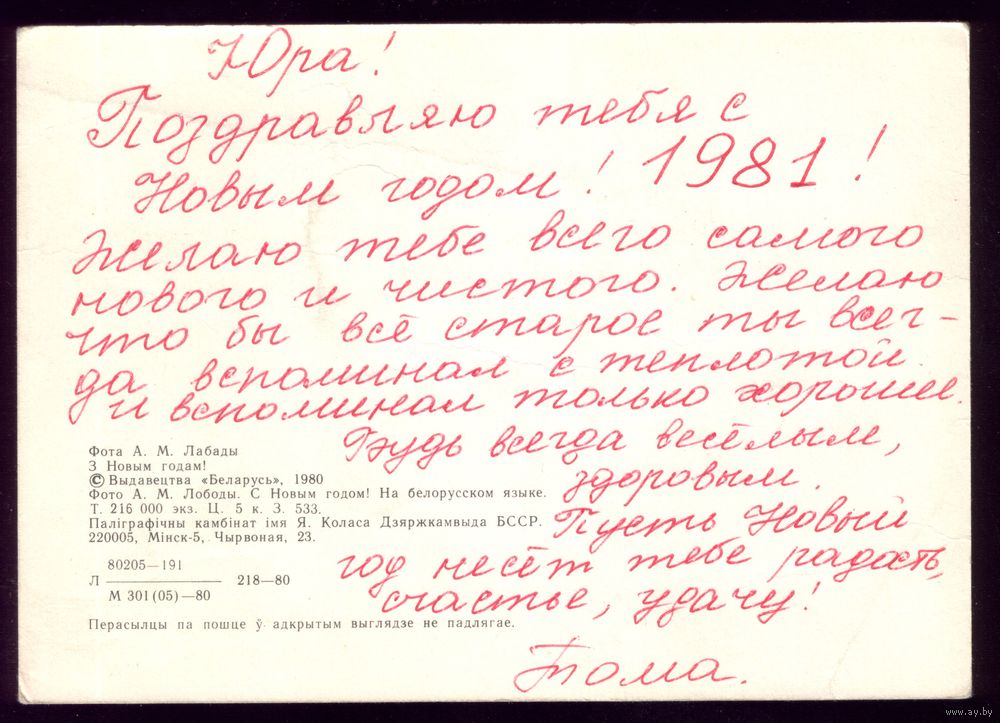 Юра!
Поздравляю тебя с
Новым годом! 1981!
Желаю тебе всего самого
нового и чистого. Желаю
что бы всё старое ты всег-
да вспоминал с теплотой
и вспоминал только хорошие.
Будь всегда весёлым,
здоровым.
Пусть Новый
год несёт тебе радость,
счастье, удачу!
Тома.
Фота А. М. Лабады
З Новым годам!
© Выдавецтва «Беларусь», 1980
Фото А. М. Лободы. С Новым годом! На белорусском языке.
Т. 216 000 экз. Ц. 5 к. З. 533.
Паліграфічны камбінат імя Я. Коласа Дзяржкамвыда БССР.
220005, Мінск-5, Чырвоная, 23.
80205—191
Л 218—80
М 301(05)—80
Перасылцы па пошце ў адкрытым выглядзе не падлягае.
www.ay.by